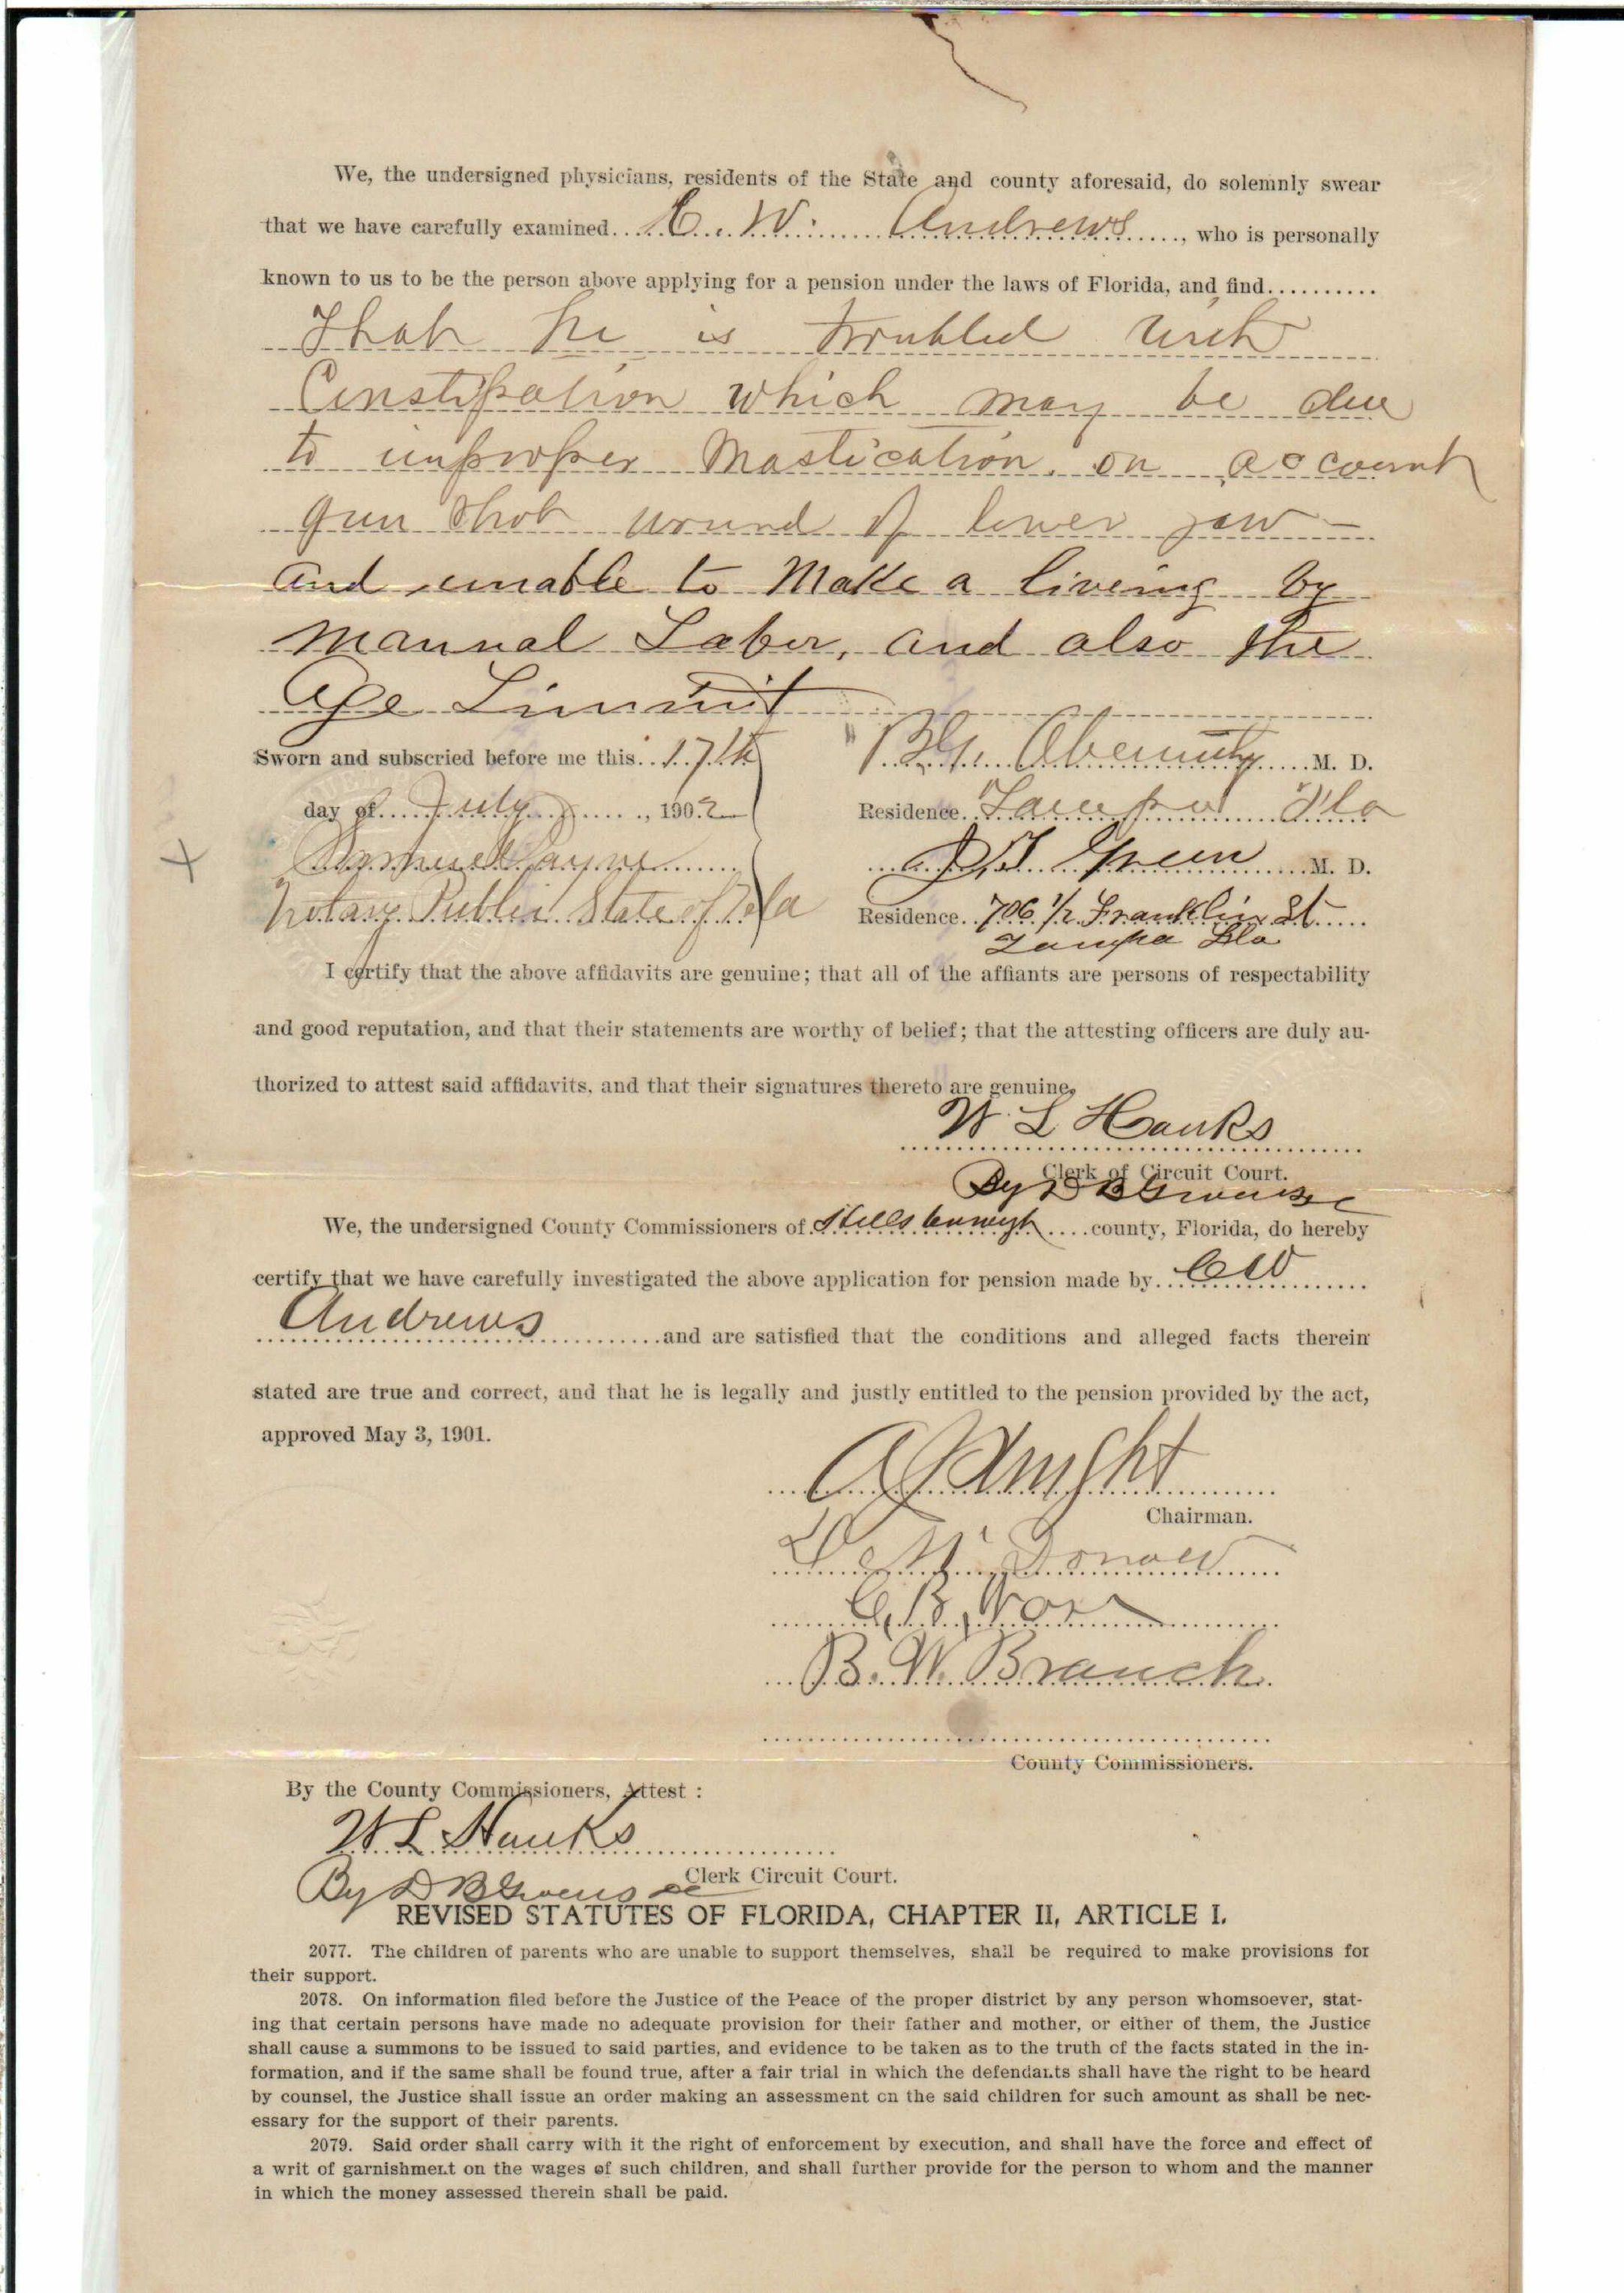 We, the undersigned physicians, residents of the State and county aforesaid, do solemnly swear
that we have carefully examined C. W. Andrews, who is personally
known to us to be the person above applying for a pension under the laws of Florida, and find
That he is troubled with
Constipation which may be due
to improper Mastication on account
gun shot wound of lower jaw —
and unable to Make a liveing by
Manual Labor, and also the
Age Limmit
Sworn and subscried before me this 17th
day of July, 1902
Notary Public State of Fla
Abernathy M. D.
Residence Tampa Fla
Green M. D.
Residence 706 1/2 Franklin St
Tampa Fla
I certify that the above affidavits are genuine; that all of the affiants are persons of respectability
and good reputation, and that their statements are worthy of belief; that the attesting officers are duly au-
thorized to attest said affidavits, and that their signatures thereto are genuine.
W L Hanks
Clerk of Circuit Court.
By D B Givens DC
We, the undersigned County Commissioners of Hillsborough county, Florida, do hereby
certify that we have carefully investigated the above application for pension made by C W
Andrews and are satisfied that the conditions and alleged facts therein
stated are true and correct, and that he is legally and justly entitled to the pension provided by the act,
approved May 3, 1901.
Chairman.
McDonald
C. B.
B. W. Branch
County Commissioners.
By the County Commissioners, Attest :
W L Hanks
Clerk Circuit Court.
By D B Givens DC
REVISED STATUTES OF FLORIDA, CHAPTER II, ARTICLE I.
2077. The children of parents who are unable to support themselves, shall be required to make provisions for
their support.
2078. On information filed before the Justice of the Peace of the proper district by any person whomsoever, stat-
ing that certain persons have made no adequate provision for their father and mother, or either of them, the Justice
shall cause a summons to be issued to said parties, and evidence to be taken as to the truth of the facts stated in the in-
formation, and if the same shall be found true, after a fair trial in which the defendants shall have the right to be heard
by counsel, the Justice shall issue an order making an assessment on the said children for such amount as shall be nec-
essary for the support of their parents.
2079. Said order shall carry with it the right of enforcement by execution, and shall have the force and effect of
a writ of garnishment on the wages of such children, and shall further provide for the person to whom and the manner
in which the money assessed therein shall be paid.